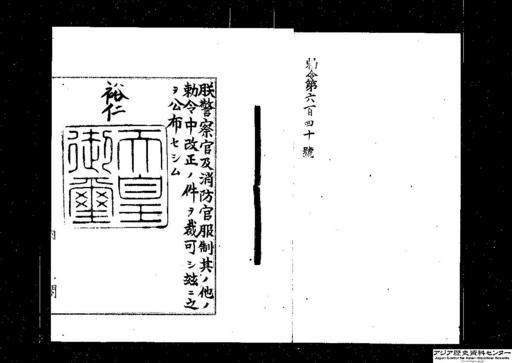 勅令第六百四十號
朕警察官及消防官服制其ノ他ノ
勅令中改正ノ件ヲ裁可シ玆ニ之
ヲ公布セシム
裕仁
天皇
御璽
内閣
アジア歴史資料センター
Japan Center for Asian Historical Records